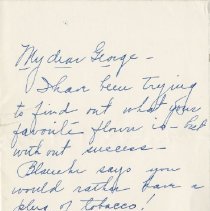 My dear George -
I have been trying
to find out what your
favorite flower is - but
with out success -
Blanche says you
would rather have a
plug of tobacco!